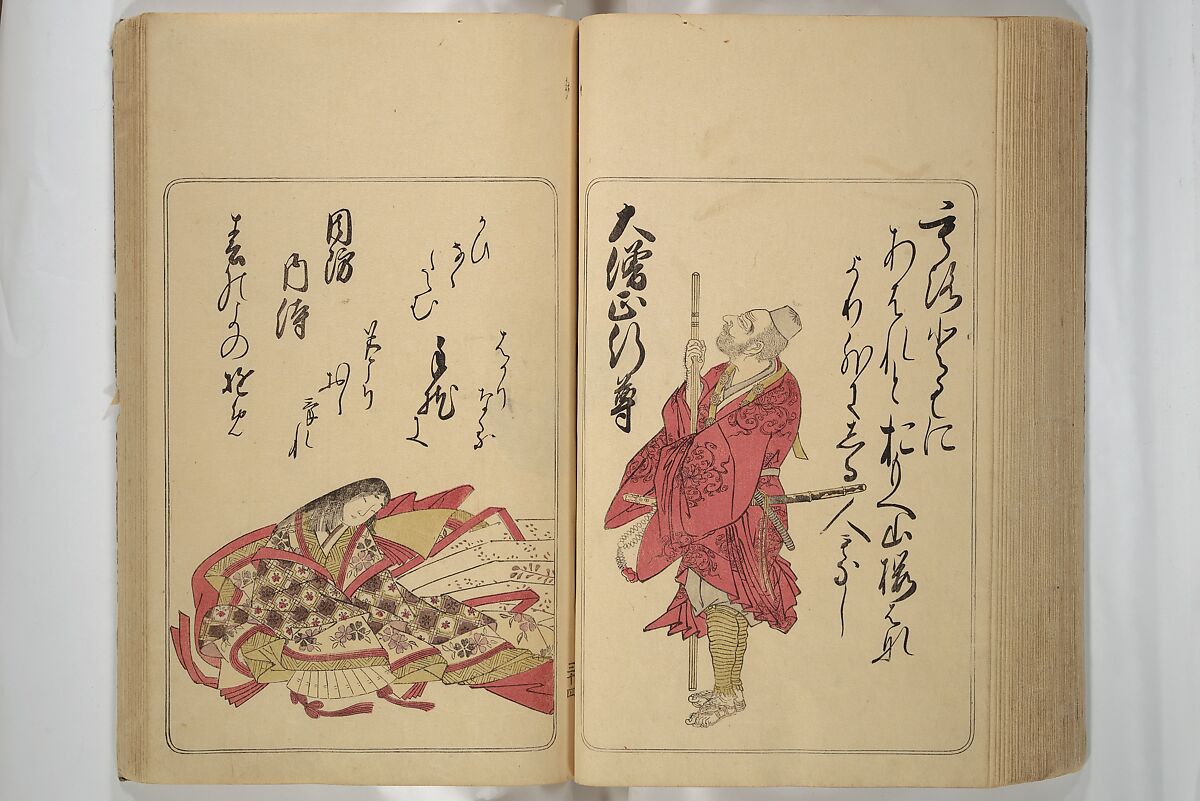 もろともに
あはれとおもへ山桜はな
より外にしる人もなし
大僧正行尊
周防
内侍
春のよの夢
はかり
なる
手枕に
かひ
なく
たゝむ
名こそ
おし
けれ
三十四